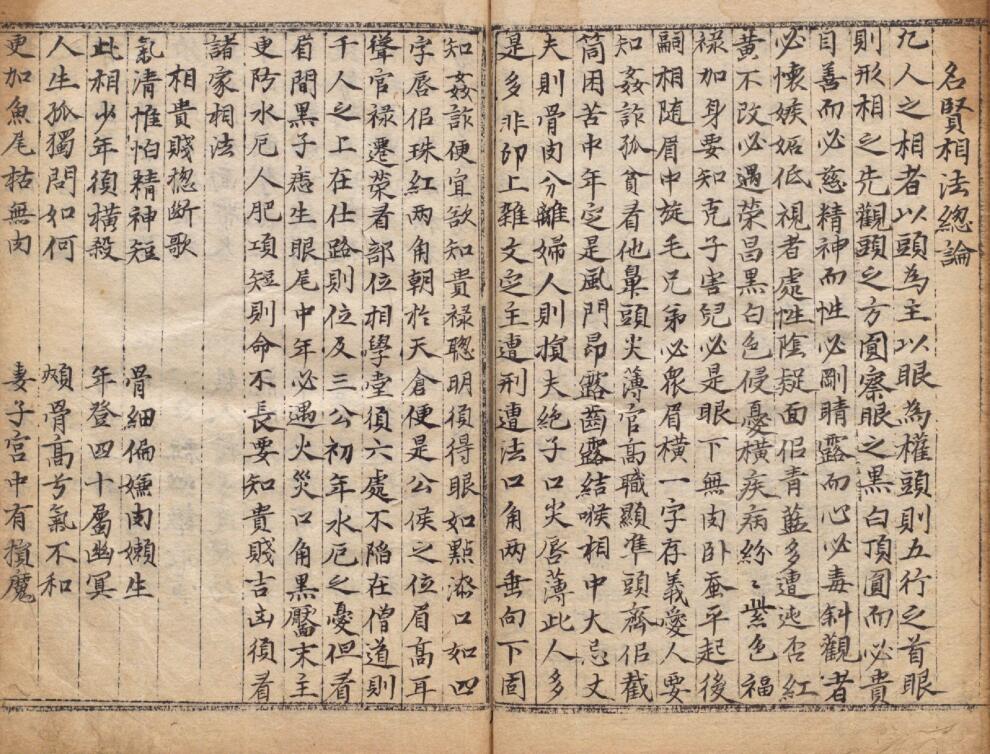 名賢相法總論
凢人之相者以頭為主以眼為權頭則五行之首眼
則形相之先觀頭之方圓察眼之黑白頂圓而必貴
目善而必慈精神而性必剛睛露而心必毒斜觀者
必懷嫉妬低視者處性陰疑面侶青藍多遭迍否紅
黃不改必遇荣昌黑白色侵憂橫疾病紛〻紫色福
禄加身要知克子害兒必是眼下無肉卧蚕平起後
嗣相随眉中旋毛兄弟必衆眉橫一字存義愛人要
知姦詐孤貧看他鼻頭尖薄官高職顯准頭齊侶截
筒困苦中年定是風門昂露齒露結喉相中大忌丈
夫則骨肉分離婦人則損夫絶子口尖唇薄此人多
是多非卯上雜文定主遭刑遭法口角兩垂向下固
知姦詐便宜欲知貴禄聦明須得眼如點漆口如四
字唇侶珠紅兩角朝於天倉便是公侯之位眉高耳
聳官禄遷荣看部位相學堂須六處不陷在僧道則
千人之上在仕路則位及三公初年水厄之憂但看
眉間黑子痣生眼尾中年必遇火災口角黑靨末主
更防水厄人肥項短則命不長要知貴賤吉凶須看
諸家相法
相貴賤揔断歌
氣清惟怕精神短　骨細偏嫌肉嬾生
此相少年須橫殺　年登四十屬幽冥
人生孤獨問如何　頰骨高兮氣不和
更加魚尾枯無肉　妻子宮中有損魔